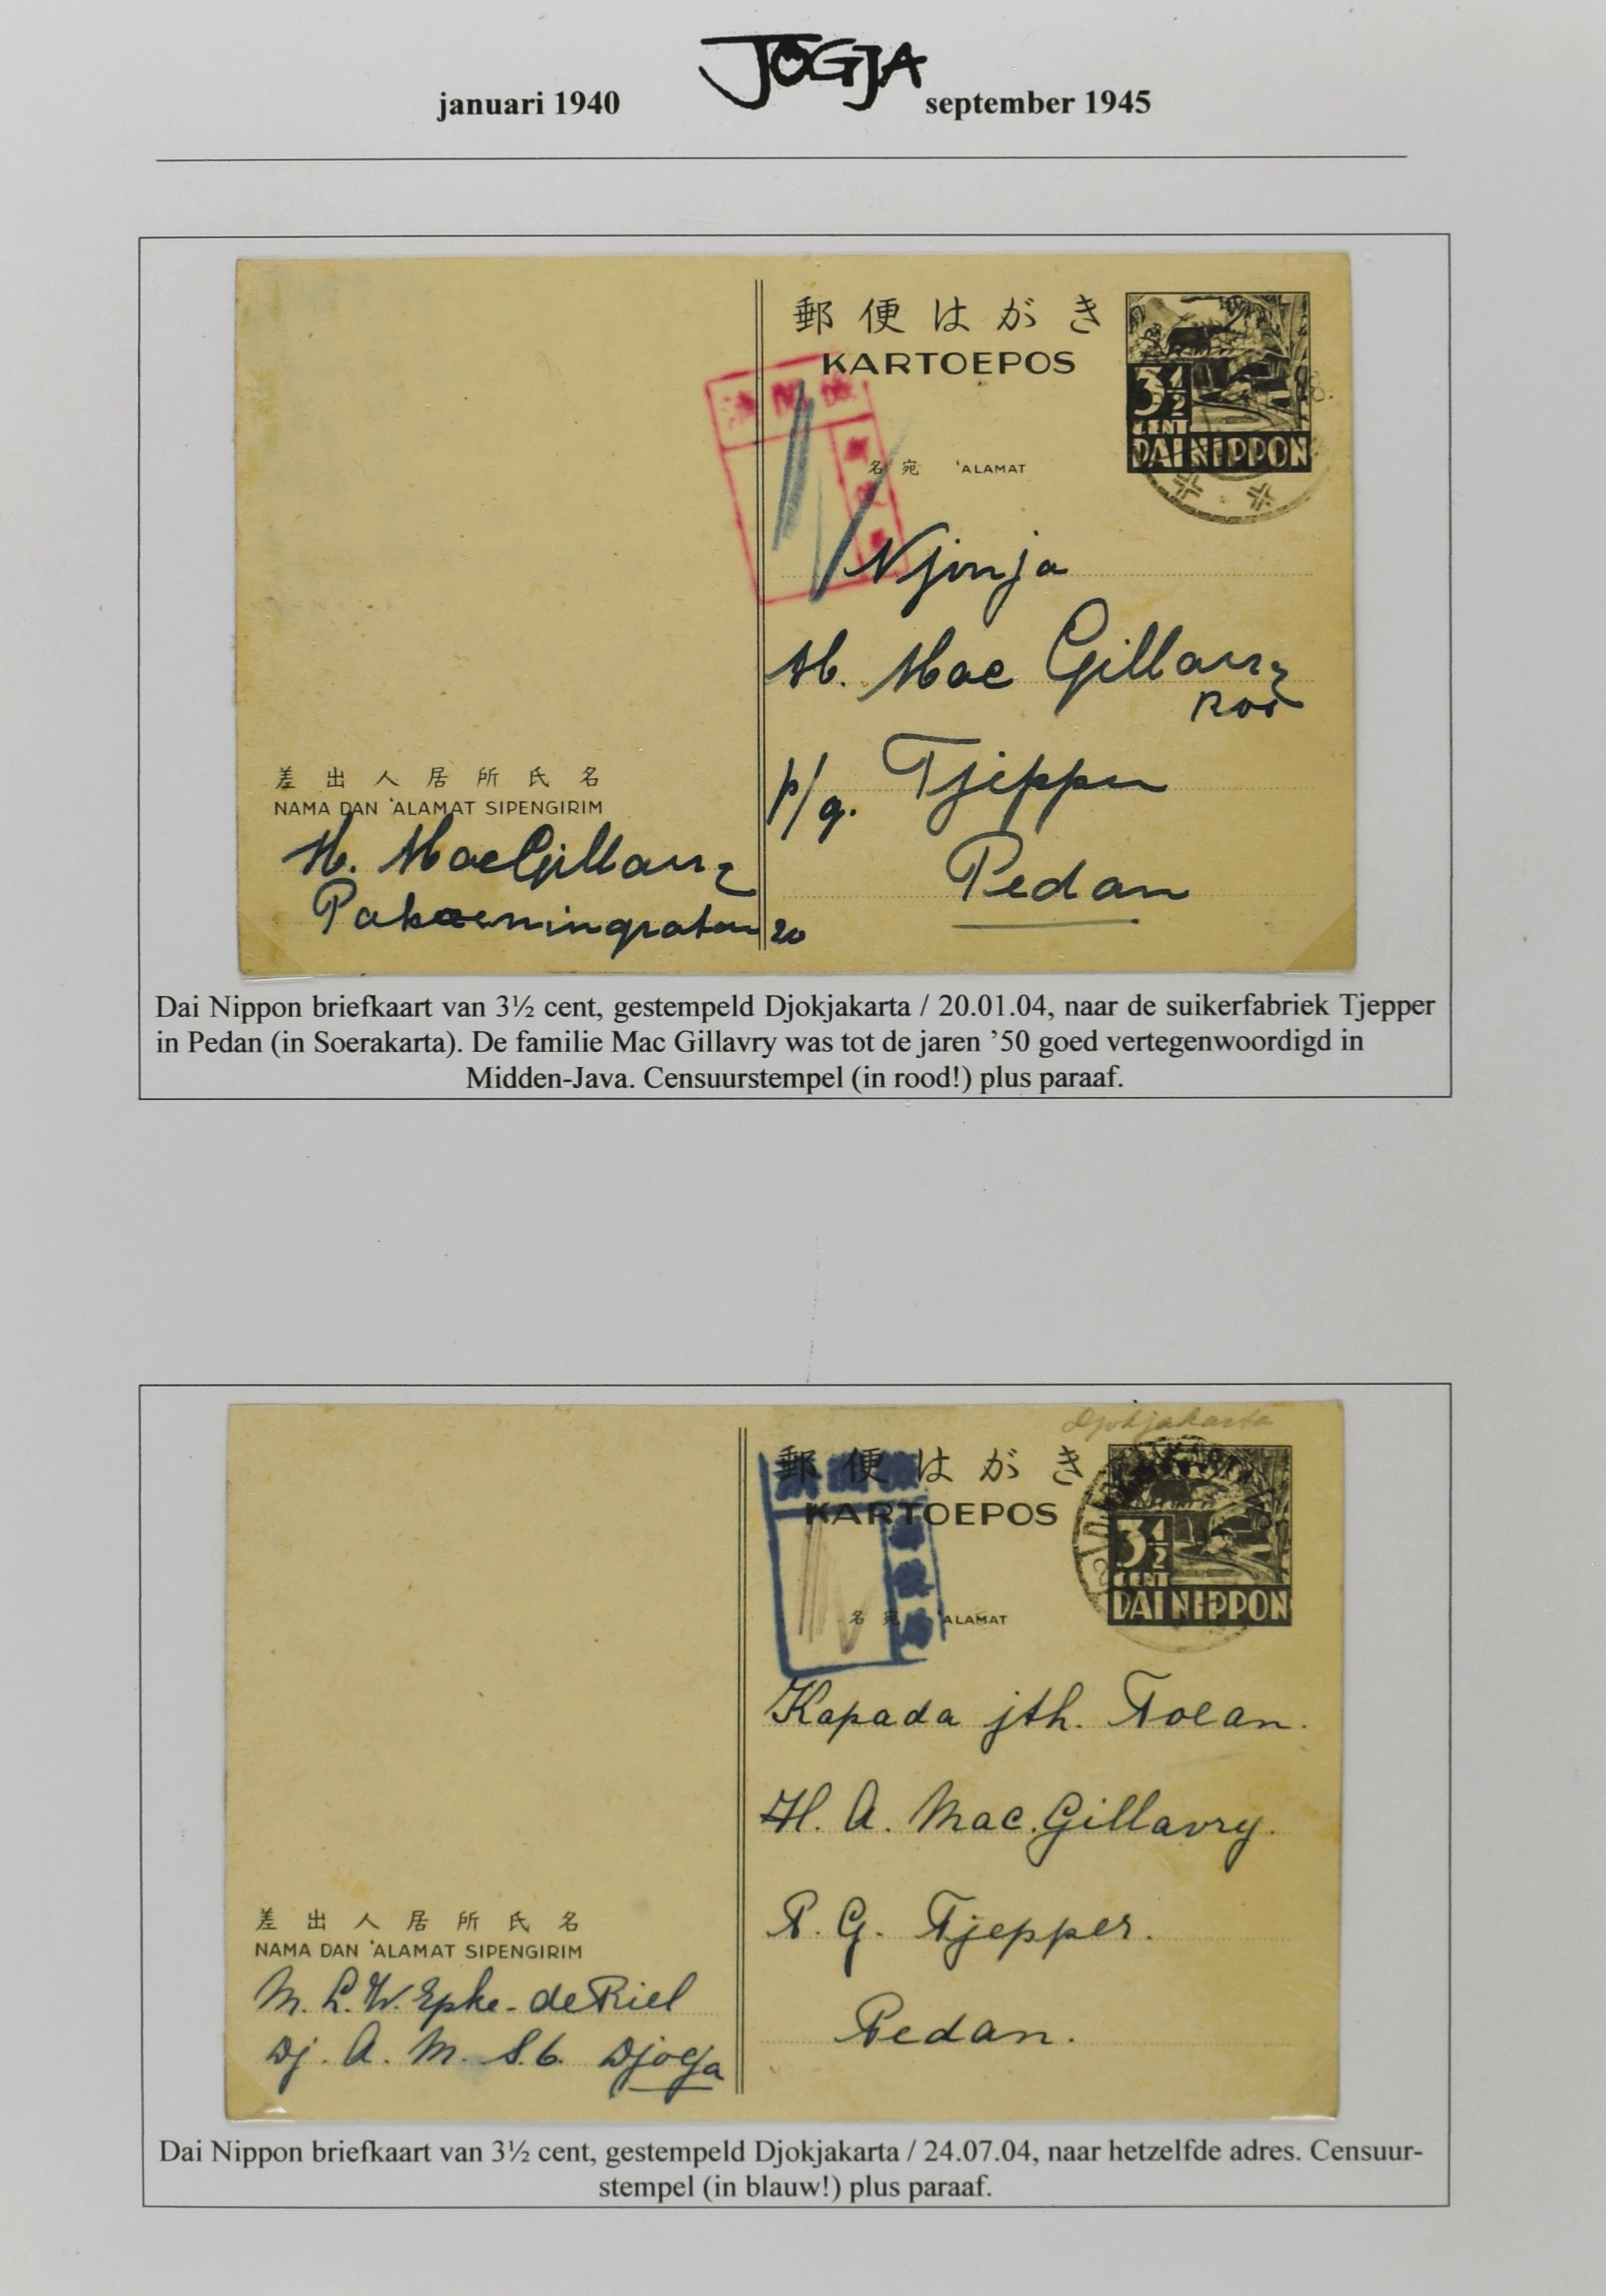 JOGJA
januari 1940 september 1945
郵便はがき
KARTOEPOS
3½
CENT
DAI NIPPON
名宛 'ALAMAT
Njonja
H. Mac Gillavry
p/g. Tjepper
Pedan
差出人居所氏名
NAMA DAN 'ALAMAT SIPENGIRIM
H. MacGillavry
Pakoeningratan 20
Dai Nippon briefkaart van 3½ cent, gestempeld Djokjakarta / 20.01.04, naar de suikerfabriek Tjepper
in Pedan (in Soerakarta). De familie Mac Gillavry was tot de jaren ’50 goed vertegenwoordigd in
Midden-Java. Censuurstempel (in rood!) plus paraaf.
Djokjakarta
郵便はがき
KARTOEPOS
3½
CENT
DAI NIPPON
名宛 'ALAMAT
Kapada jth. Toean.
H. A. Mac.Gillavry.
P. G. Tjepper.
Pedan.
差出人居所氏名
NAMA DAN 'ALAMAT SIPENGIRIM
M. L. W. Epke - de Riel
Dj. A. M. S. 6. Djogja
Dai Nippon briefkaart van 3½ cent, gestempeld Djokjakarta / 24.07.04, naar hetzelfde adres. Censuur-
stempel (in blauw!) plus paraaf.